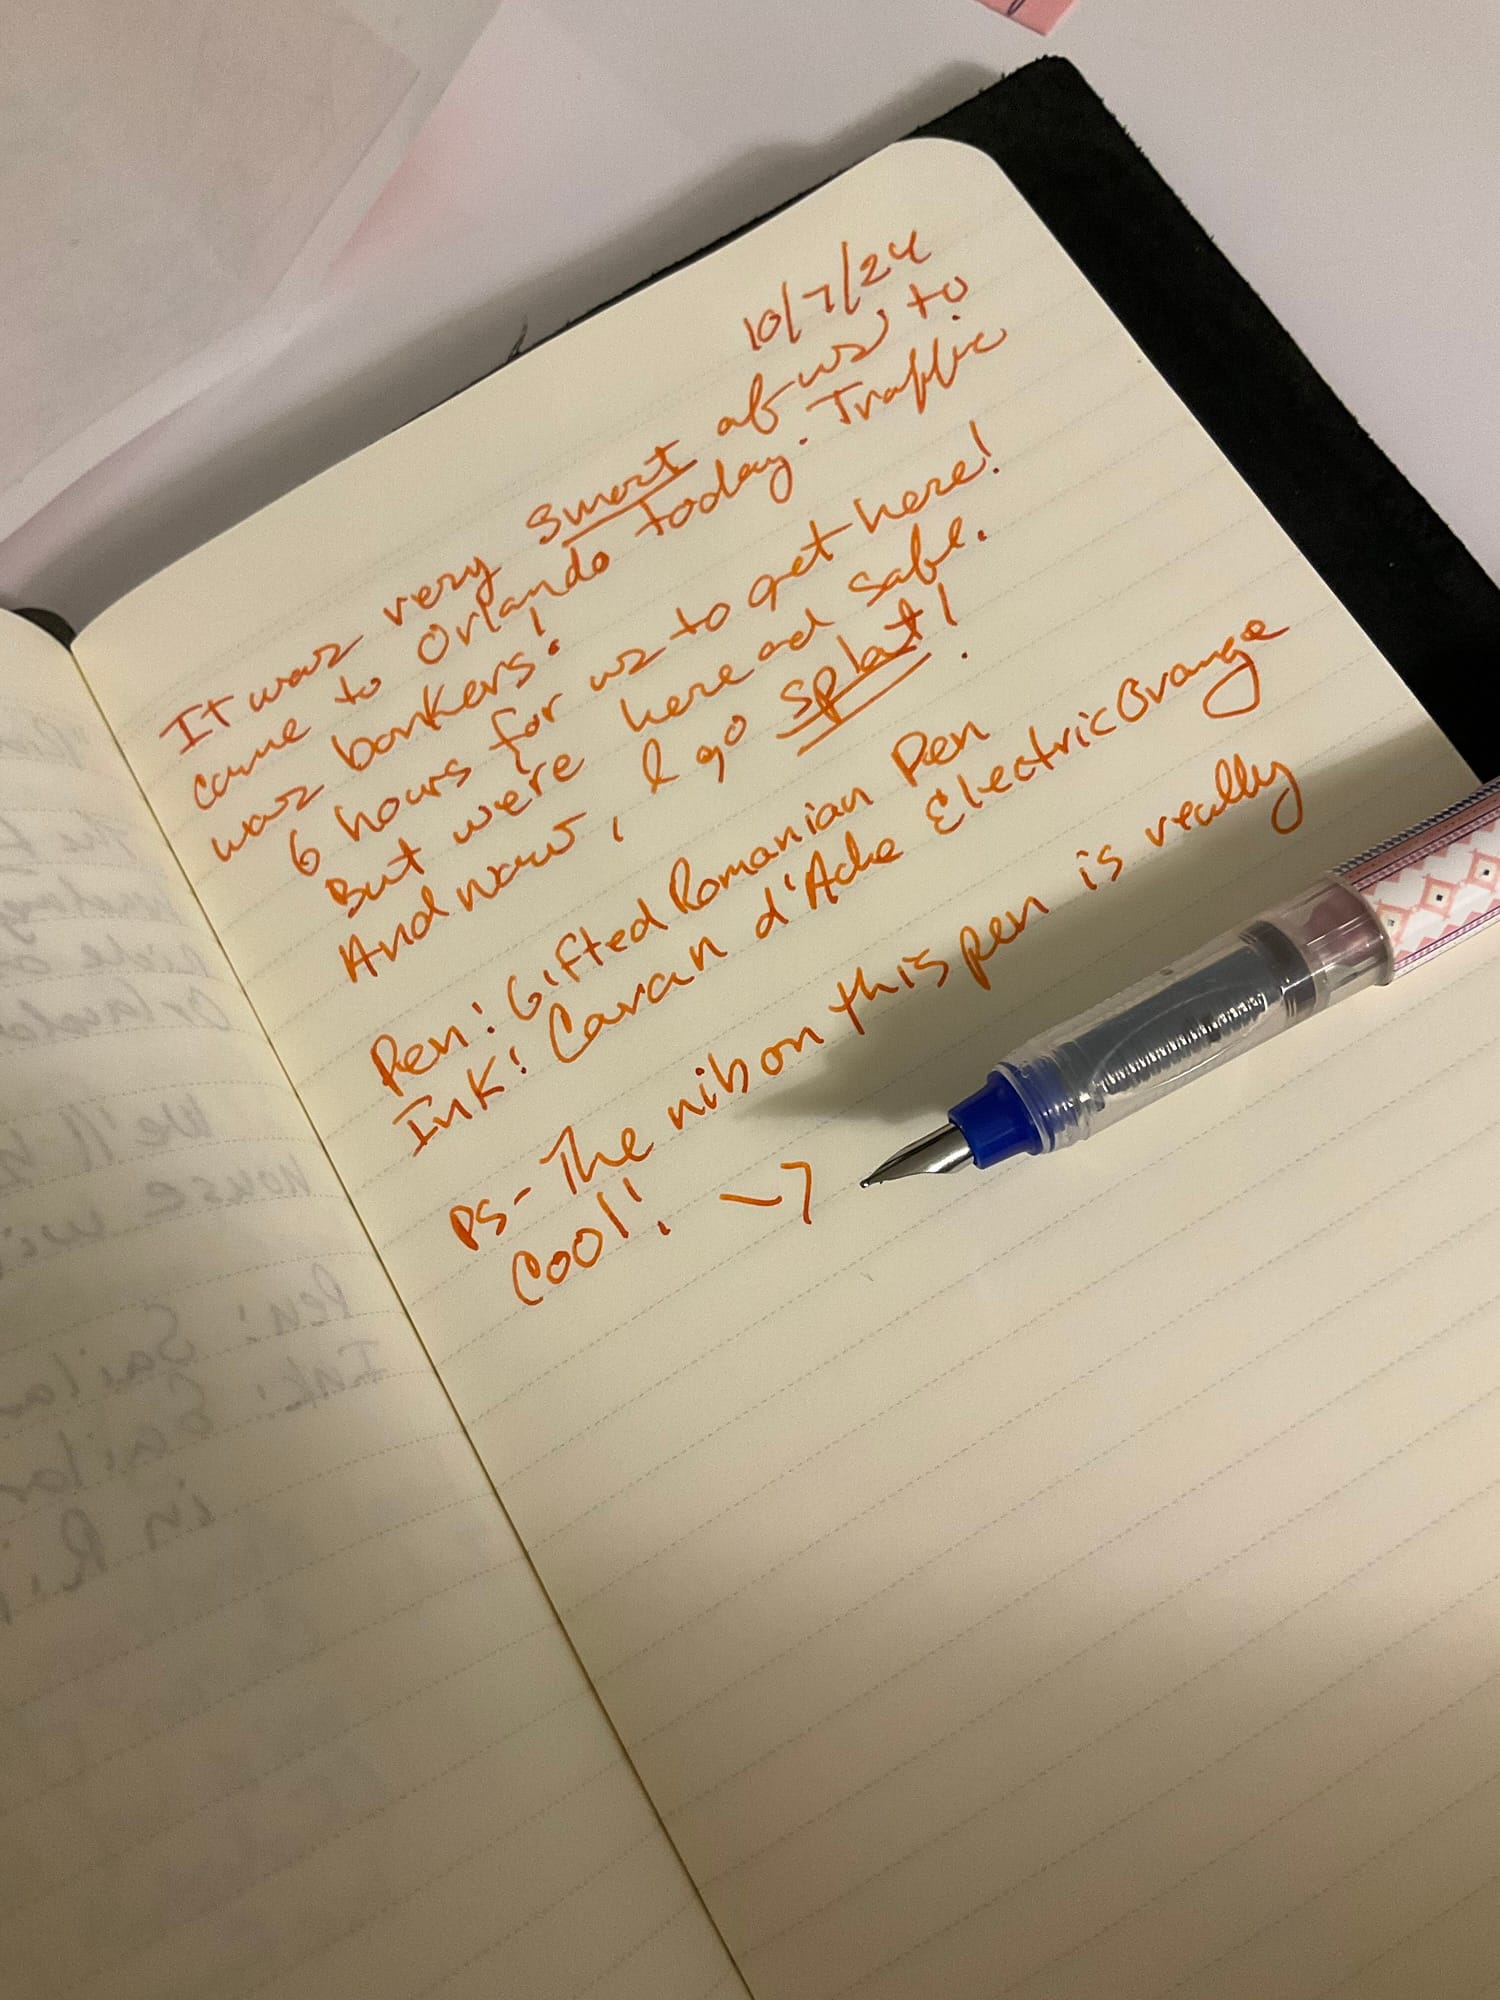 10/7/24
It was very smart of us to
came to Orlando today. Traffic
was bonkers!
6 hours for us to get here!
But we're here and safe.
And now, I go splat!
Pen: Gifted Romanian Pen
Ink: Caran d'Ache Electric Orange
PS- The nib on this pen is really
cool! →
We'll
house wi
Pen: Sailo
Ink: Sailor
in Ri
Orlando